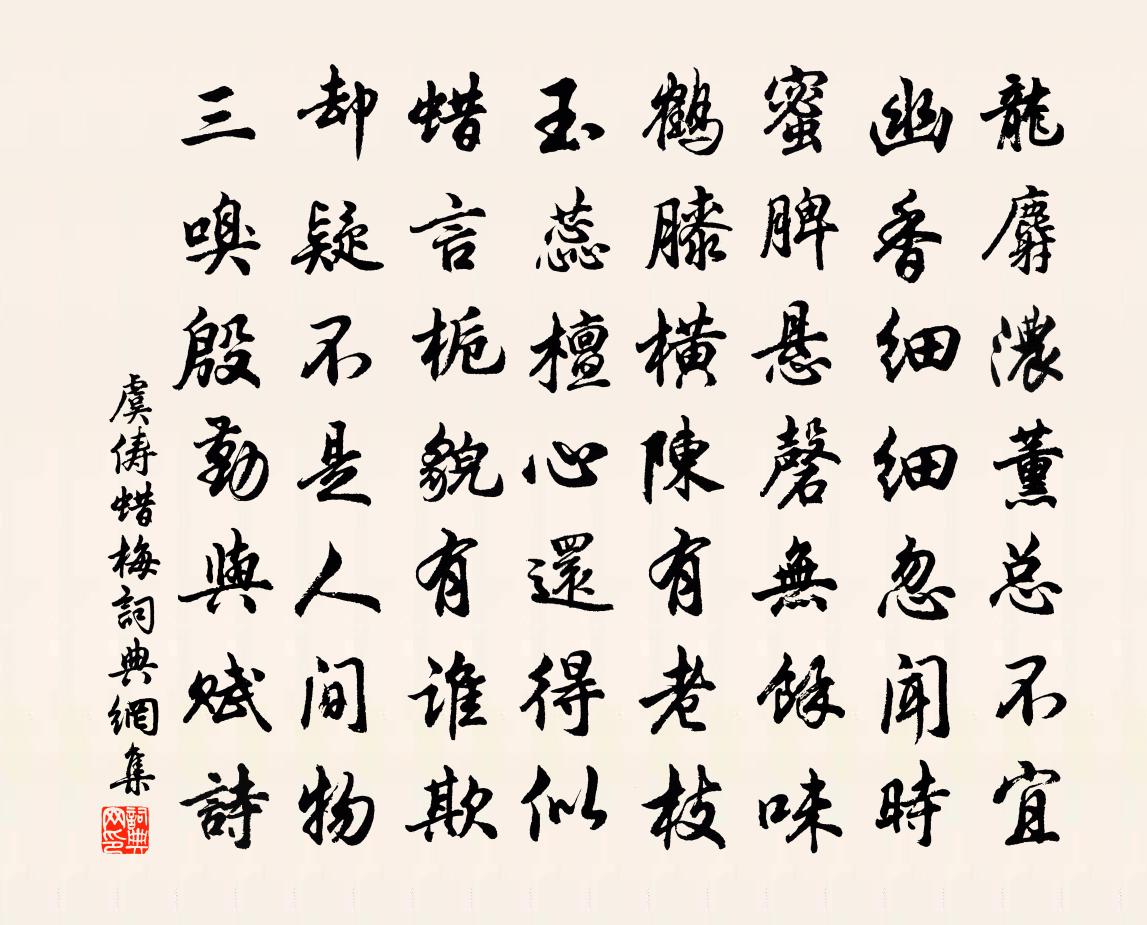 龍麝濃薰总不宜
幽香细细忽聞時
蜜脾悬磬無餘味
鶴膝橫陳有老枝
玉蕊檀心還得似
蜡言栀貌有谁欺
却疑不是人间物
三嗅殷勤與赋詩
虞俦蜡梅詞典網集
詞典网印